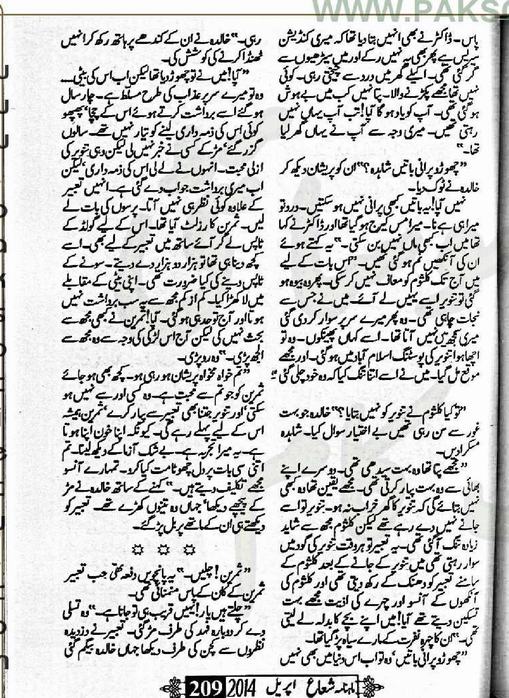 WWW.PAKSO
پاس۔ ڈاکٹر نے بھی انہیں بتا دیا تھا کہ میری کنڈیشن
سیریس ہے پھر بھی آپ نہیں رکے اور میں سیڑھیوں سے
گر گئی تھی۔ اکیلے گھر میں درد سے چیختی رہی۔ کوئی
نہیں تھا مجھے پکڑنے والا۔ پتا نہیں کب میں بے ہوش
ہو گئی تھی۔ آپ کو یاد ہو گا آپا! تب آپ یہاں نہیں
رہتی تھیں۔ میری وجہ سے آپ نے یہاں گھر لیا
تھا۔"
"چھوڑو پرانی باتیں شاہدہ؟" ان کو پریشان دیکھ کر
خالدہ نے ٹوک دیا۔
نہیں آپا! یہ باتیں کبھی پرانی نہیں ہو سکتیں۔ درد تو
میرا ہی ہے نا۔ میرا مس کیرج ہو گیا تھا اور ڈاکٹر نے کہا
تھا میں اب کبھی ماں نہیں بن سکتی۔" یہ کہتے ہوئے
ان کی آنکھیں نم ہو گئی تھیں۔ "اس بات کے لیے
میں آج تک کلثوم کو معاف نہیں کر سکی۔ پھر وہ بیوہ ہو
گئی تو تنویر اسے یہیں لے آئے۔ میں نے جس سے
نجات چاہی تھی۔ وہ پھر میرے سر پر سوار کر دی گئی
میری سمجھ میں نہیں آتا تھا۔ اسے کہاں پھینکوں۔ وہ تو
اچھا ہوا تنویر کی پوسٹنگ اسلام آباد میں ہو گئی۔ اور مجھے
موقع مل گیا۔ میں نے اسے اتنا تنگ کیا کہ وہ خود چلی گئی
"تو کیا کلثوم نے تنویر کو نہیں بتایا؟" خالدہ جو بہت
غور سے سن رہی تھیں بے اختیار سوال کیا۔ شاہدہ
مسکرا دیں۔
"مجھے پتا تھا وہ بہت سیدھی تھی۔ دوسرے اپنے
بھائی سے وہ بہت پیار کرتی تھی۔ مجھے یقین تھا وہ کبھی
نہیں بتائے گی کہ تنویر کا گھر خراب نہ ہو۔ تنویر تو اسے
جانے نہیں دے رہے تھے لیکن کلثوم مجھ سے شاید
زیادہ تنگ آ گئی تھی۔ یہ تعبیر تو ہر وقت تنویر کی گود میں
سوار رہتی تھی میں تنویر کے جانے کے بعد کلثوم کے
سامنے تعبیر کو دھنک کے رکھ دیتی تھی اور کلثوم کی
آنکھوں کے آنسو اور چہرے کی اذیت مجھے بہت
تسکین دیتے تھے آپا! میں اپنے بچے کا بدلہ لے لیتی
تھی۔" ان کا چہرہ نفرت کے مارے سیاہ پڑ گیا تھا۔
"چھوڑو پرانی باتیں، وہ تو اب اس دنیا میں بھی نہیں
رہی۔" خالدہ نے ان کے کندھے پر ہاتھ رکھ کر انہیں
ٹھنڈا کرنے کی کوشش کی۔
"آپا! میں نے تو چھوڑ دیا تھا لیکن اب اس کی بیٹی۔۔۔
وہ تو میرے سر پر عذاب کی طرح مسلط ہے۔ چار سال
ہو گئے اسے برداشت کرتے ہوئے اس کے چچا پھوپھو
کوئی اس کی ذمہ داری لینے کو تیار نہیں تھے۔ سالوں
گزر گئے، مڑ کے کسی نے خبر نہیں لی لیکن وہی تنویر کی
ازلی محبت۔ انہوں نے لے لی اس کی ذمہ داری، لیکن
اب میری برداشت جواب دے گئی ہے۔ انہیں تعبیر
کے علاوہ کوئی نظر ہی نہیں آتا۔ پرسوں کی بات لے
لیں۔ ثمرین کا رزلٹ آیا تھا۔ اس کے لیے گولڈ کے
ٹاپس لے کر آئے ساتھ میں تعبیر کے لیے بھی۔ اسے
کچھ دینا ہی تھا تو ہزار دو ہزار دے دیتے۔ سونے کے
ٹاپس دینے کی کیا ضرورت تھی۔ اپنی بیٹی کے مقابلے
میں لا کھڑا کیا۔ کم از کم مجھ سے یہ سب برداشت نہیں
ہوتا اور آج تو حد ہی ہو گئی۔ آپا! ثمرین نے کبھی مجھ سے
بحث نہیں کی لیکن آج اس لڑکی کی وجہ سے وہ مجھ سے
الجھ پڑی۔" وہ رو پڑی۔
"تم خواہ مخواہ پریشان ہو رہی ہو۔ کچھ بھی ہو جائے
ثمرین کو جو تم سے محبت ہے۔ وہ کسی اور سے نہیں ہو
سکتی، اور تنویر جتنا بھی تعبیر سے پیار کرے، ثمرین ہمیشہ
اس کے لیے پہلے رہے گی۔ کیونکہ اپنا خون اپنا ہوتا
ہے۔ یہ میرا تجربہ ہے۔ بے شک آزما کے دیکھ لینا۔ تم
اتنی سی بات پر دل چھوٹا مت کیا کرو۔ تمہارے آنسو
مجھے تکلیف دیتے ہیں۔" کہنے کے ساتھ خالدہ نے مڑ
کے پیچھے دیکھا، جہاں وہ تینوں کھڑے تھے۔ تعبیر کو
دیکھتے ہی ان کے ماتھے پر بل پڑ گئے۔
☆ ☆ ☆
"ثمرین! چلیں۔" یہ پانچویں دفعہ تھی جب تعبیر
ثمرین کے کان کے پاس منمنائی تھی۔
"چلتے ہیں یار! انہیں قریب ہی تو جانا ہے۔" وہ تسلی
دے کر دوبارہ فہد کی طرف مڑ گئی۔ تعبیر نے دزدیدہ
نظروں سے کچن کی طرف دیکھا جہاں خالدہ بیگم گئی
ماہنامہ شعاع اپریل 2014 209